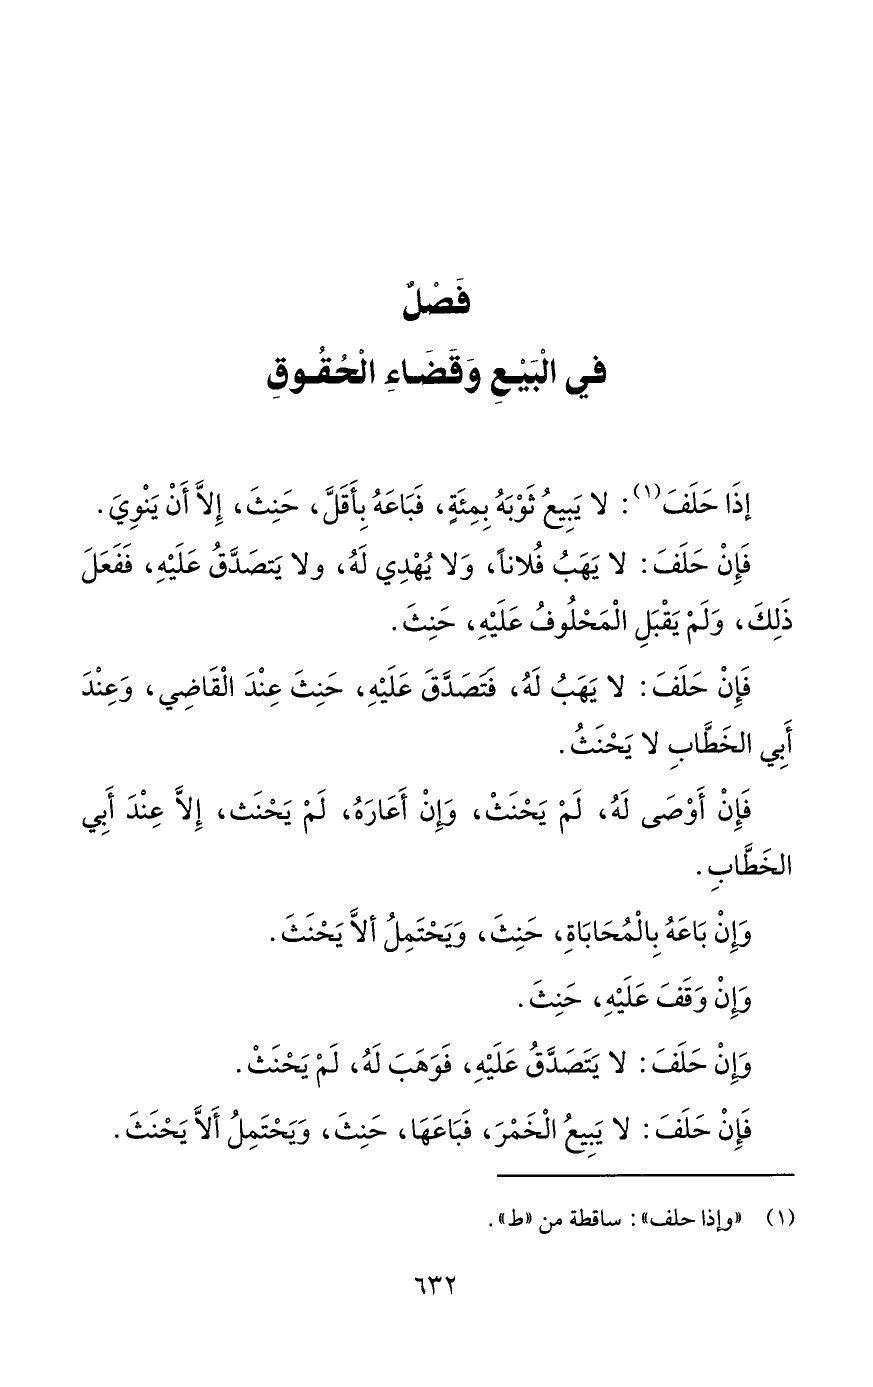 فَصْلٌ
في الْبَيْعِ وَقَضَاءِ الْحُقُوقِ
إذَا حَلَفَ(١): لا يَبِيعُ ثَوْبَهُ بِمِئَةٍ، فَبَاعَهُ بِأَقَلَّ، حَنِثَ، إِلاَّ أَنْ يَنْوِيَ.
فَإِنْ حَلَفَ: لا يَهَبُ فُلاناً، وَلا يُهْدِي لَهُ، ولا يَتصَدَّقُ عَلَيْهِ، فَفَعَلَ
ذَلِكَ، وَلَمْ يَقْبَلِ الْمَحْلُوفُ عَلَيْهِ، حَنِثَ.
فَإِنْ حَلَفَ: لا يَهَبُ لَهُ، فَتَصَدَّقَ عَلَيْهِ، حَنِثَ عِنْدَ الْقَاضِي، وَعِنْدَ
أَبِي الخَطَّابِ لا يَحْنَثُ.
فَإِنْ أَوْصَى لَهُ، لَمْ يَحْنَثْ، وَإِنْ أَعَارَهُ، لَمْ يَحْنَث، إِلاَّ عِنْدَ أَبِي
الخَطَّابِ.
وَإِنْ بَاعَهُ بِالْمُحَابَاةِ، حَنِثَ، وَيَحْتَمِلُ ألاَّ يَحْنَثَ.
وَإِنْ وَقَفَ عَلَيْهِ، حَنِثَ.
وَإِنْ حَلَفَ: لا يَتَصَدَّقُ عَلَيْهِ، فَوَهَبَ لَهُ، لَمْ يَحْنَثْ.
فَإِنْ حَلَفَ: لا يَبِيعُ الْخَمْرَ، فَبَاعَهَا، حَنِثَ، وَيَحْتَمِلُ أَلاَّ يَحْنَثَ.
(١) «وإذا حلف»: ساقطة من «ط».
٦٣٢